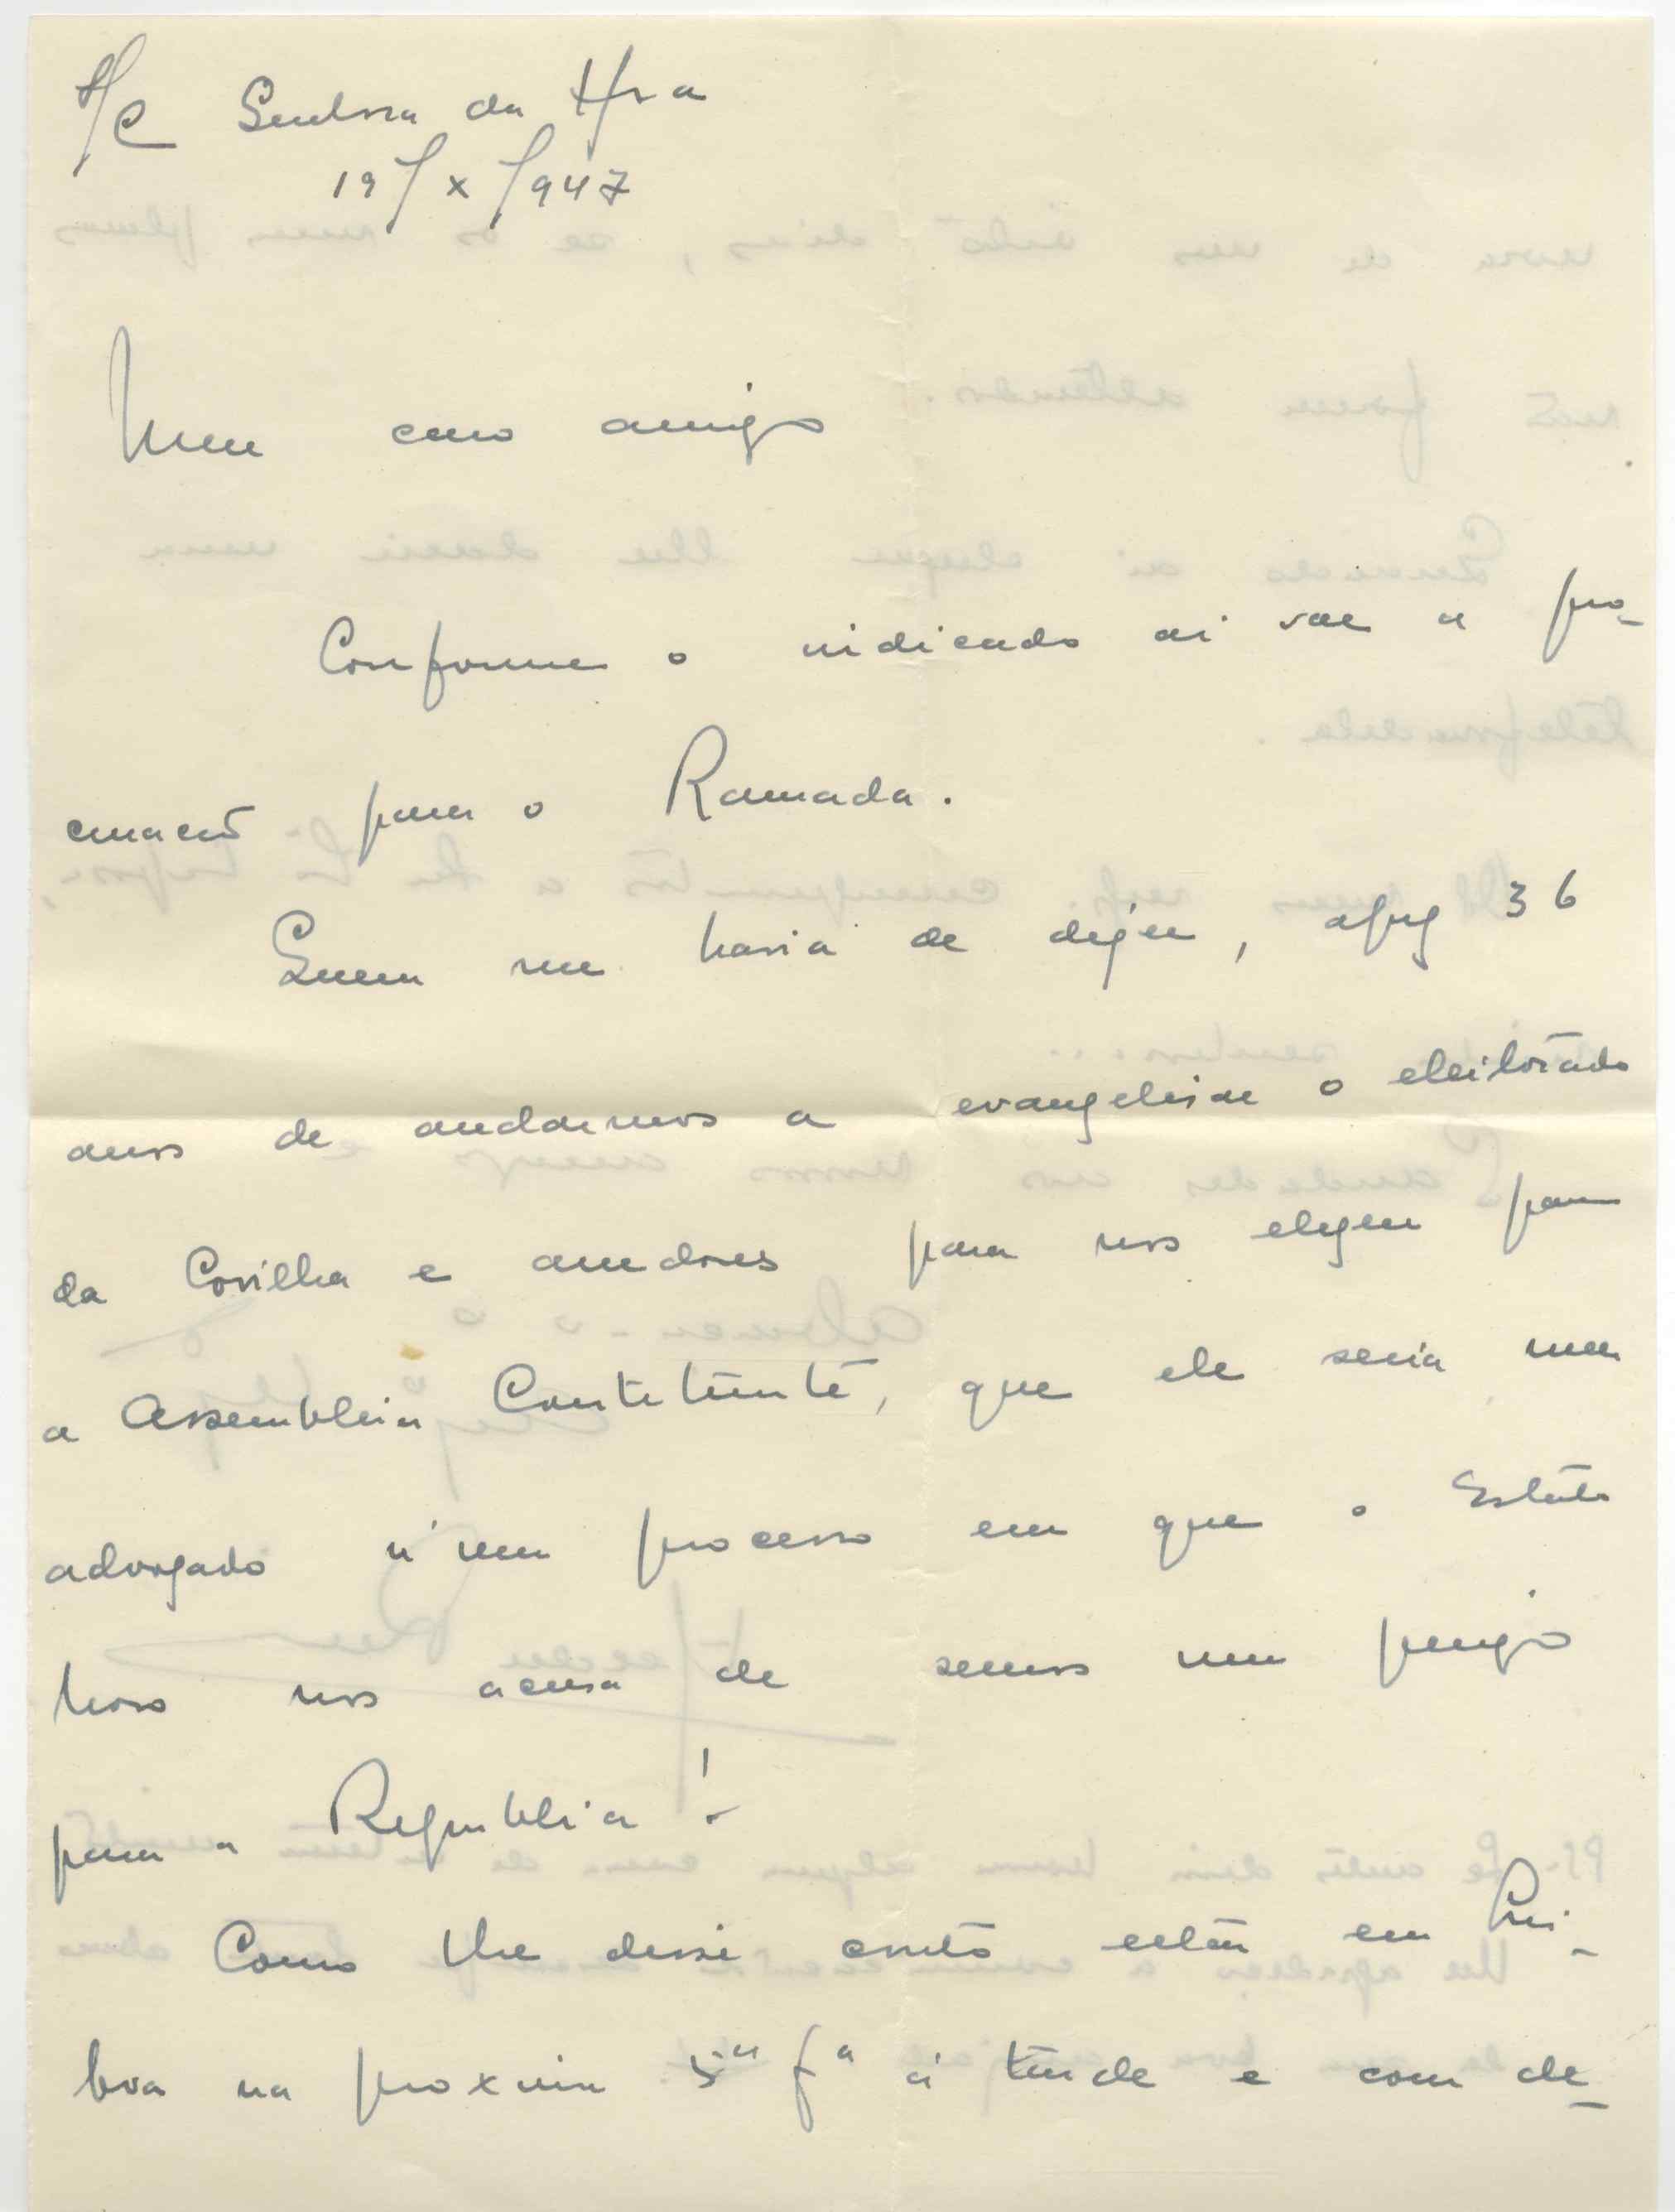 S/C Senhora da Hora
19/X/947
Meu caro amigo
Conforme o indicado ai vae a pro-
curacão para o Ramada.
Quem me havia de dizer, apoz 36
anos de andarmos a evangelisar o eleitorado
da Covilha e arredores para nos eleger para
a Assembleia Constituinte, que ele seria meu
advogado n'um processo em que o Estado
Novo nos acusa de sermos um perigo
para a Republica!
Como lhe disse conto estar em Lis-
boa na proxima 5ª fª á tarde e com de-